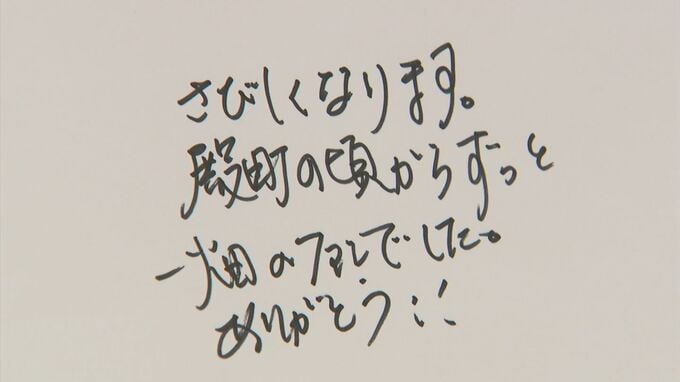 さびしくなります。
殿町の頃からずっと
一畑のファンでした。
ありがとう!!